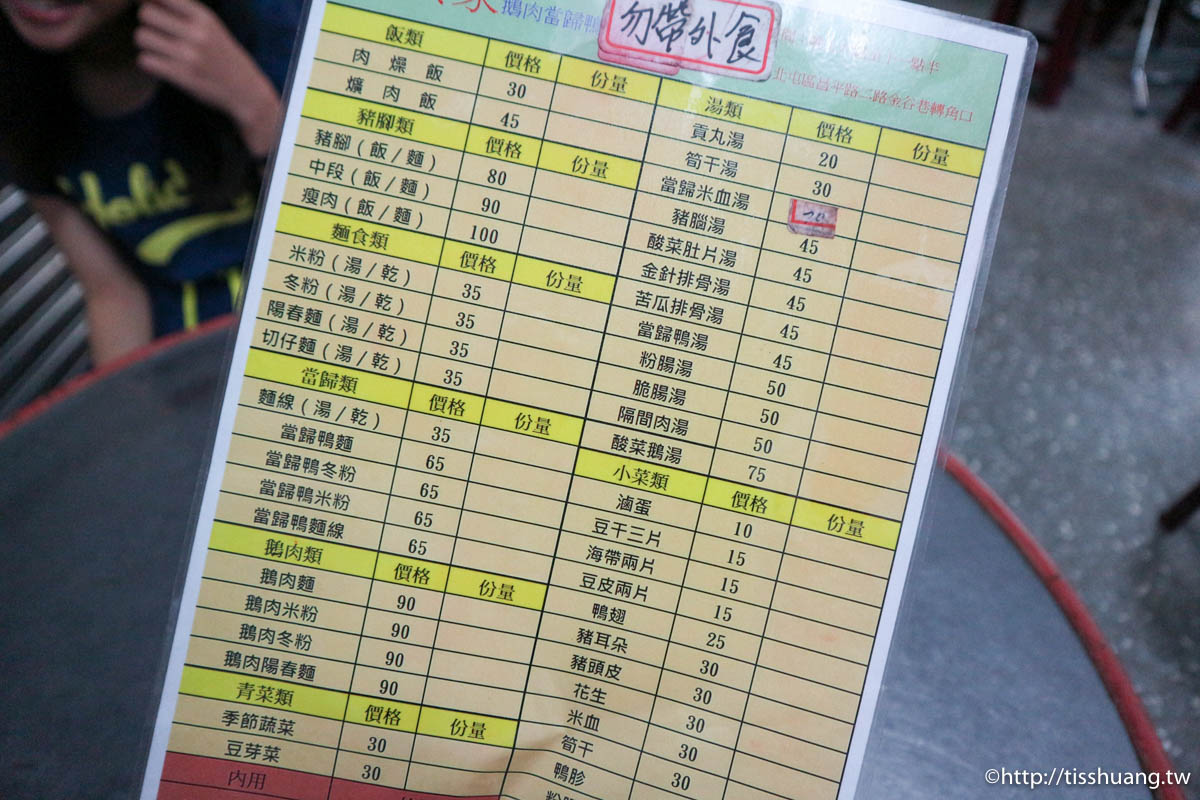 鵝肉當歸鴨
勿帶外食
點半
北屯區昌平路二路金谷巷轉角口
飯類 價格 份量
肉燥飯 30
爌肉飯 45
豬腳類 價格 份量
豬腳(飯/麵) 80
中段(飯/麵) 90
瘦肉(飯/麵) 100
麵食類 價格 份量
米粉(湯/乾) 35
冬粉(湯/乾) 35
陽春麵(湯/乾) 35
切仔麵(湯/乾) 35
當歸類 價格 份量
麵線(湯/乾) 35
當歸鴨麵 65
當歸鴨冬粉 65
當歸鴨米粉 65
當歸鴨麵線 65
鵝肉類 價格 份量
鵝肉麵 90
鵝肉米粉 90
鵝肉冬粉 90
鵝肉陽春麵 90
青菜類 價格 份量
季節蔬菜 30
豆芽菜 30
內用
湯類 價格 份量
貢丸湯 20
筍干湯 30
當歸米血湯
豬腦湯 45
酸菜肚片湯 45
金針排骨湯 45
苦瓜排骨湯 45
當歸鴨湯 45
粉腸湯 50
脆腸湯 50
隔間肉湯 50
酸菜鵝湯 75
小菜類 價格 份量
滷蛋 10
豆干三片 15
海帶兩片 15
豆皮兩片 15
鴨翅 25
豬耳朵 30
豬頭皮 30
花生 30
米血 30
筍干 30
鴨胗
©http://tisshuang.tw